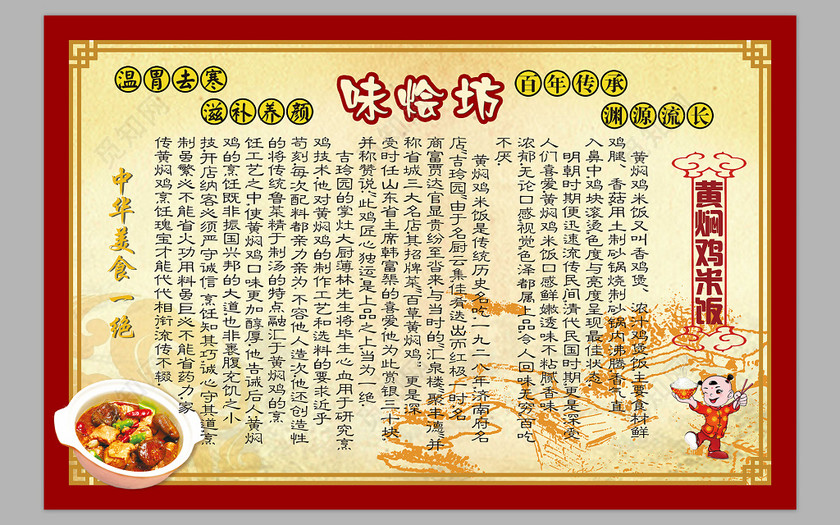 温胃去寒
滋补养颜
味烩坊
百年传承
渊源流长
黄焖鸡米饭
黄焖鸡米饭又叫香鸡煲、浓汁鸡煲饭主要食材鲜
鸡腿、香菇用土制砂锅烧制砂锅内沸腾香气直
入鼻中鸡块滚烫色度与亮度呈现最佳状态
明朝时期便迅速流传民间清代民国时期更是深受
人们喜爱黄焖鸡米饭口感鲜嫩透味不粘腻香味
浓郁无论口感视觉色泽都属上品令人回味无穷百吃
不厌
黄焖鸡米饭是传统历史名吃一九二八年济南府名
店“吉玲园”由于名厨云集佳肴迭出而红极一时名
商富贾达官显贵纷至沓来与当时的“汇泉楼聚丰德”并
称省城三大名店其招牌菜“百草黄焖鸡”更是深
受时任山东省主席韩富榘的喜爱他为此赏银三十块
并称赞说“此鸡匠心独运是上品之上当为一绝
吉玲园的掌灶大厨薄林先生将毕生心血用于研究烹
鸡技术他对黄焖鸡的制作工艺和选料的要求近乎
苟刻每次配料都亲力亲为不容他人造次他还创造性
的将传统鲁菜精于制汤的特点融汇于黄焖鸡的烹
饪工艺之中使黄焖鸡口味更加醇厚他告诫后人黄焖
鸡的烹饪既非振国兴邦的大道也非裹腹充饥之小
技开店纳客必须严守诚信烹饪知其巧诚心守其道烹
制虽繁必不能省火功用料虽巨必不能省药力家
传黄焖鸡烹饪瑰宝才能代代相衔流传不辍
中华美食一绝